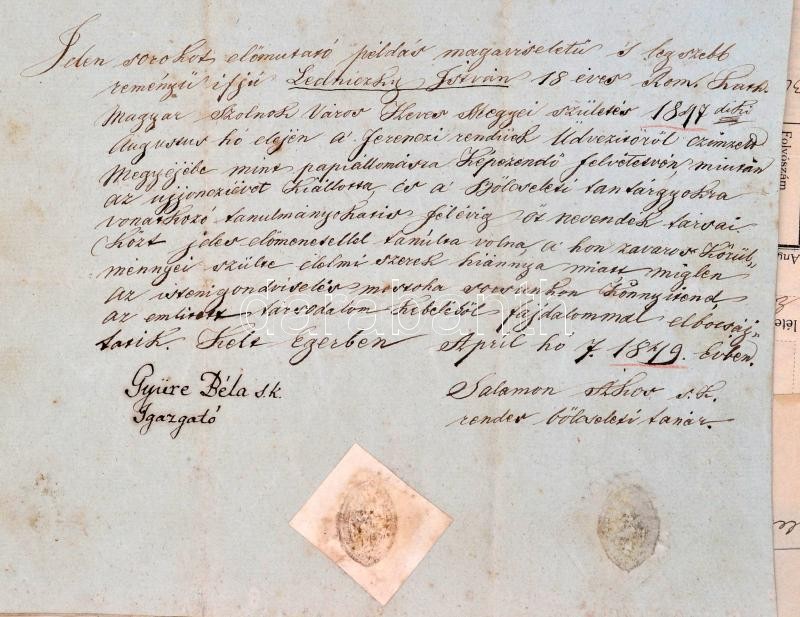 Iden sorokot előmutató példás magaviseletű s legszebb
reményű ifjú Ledniczky István 18 éves Rom. Kath.
Magyar Szolnok Város Heves Megyei születés 1847 diki
Augustus hó elején a Ferenczi rendűek Üdvezitőről czimzett
Megyéjébe mint papiállomásra Képezendő felvétetvén, miután
az ujjonczévet Kiállotta, és a Bölcseleti tantárgyokra
vonatkozó tanulmányokatis félévig öt nevendék társai
Közt jeles előmenetellel tanúlta volna a hon zavaros Körül-
ménnyei szülte élelmi szerek hiánnya miatt miglen
az istenigondviselés mostoha sorsukon Könnyitend,
az emlitett társodalom Kebeléből fájdalommal elbocsáj-
tatik. Kelt Egerben April ho 7. 1849. Évben.
Gyüre Béla s.k.
Igazgató
Salamon Ákos s.k.
rendes bölcseleti tanár.
darabanth
Folyószám